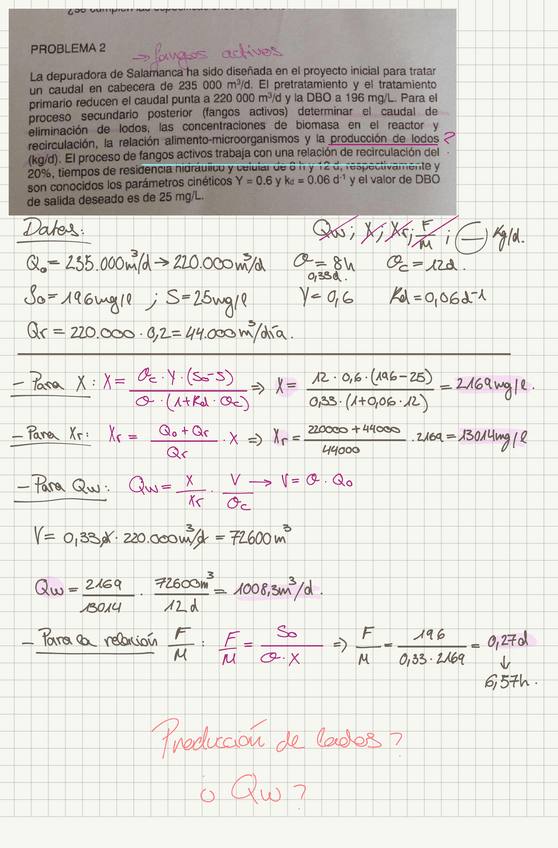 ¿se cumplen las especificaciones
PROBLEMA 2
→ fangos activos
La depuradora de Salamanca ha sido diseñada en el proyecto inicial para tratar
un caudal en cabecera de 235 000 m³/d. El pretratamiento y el tratamiento
primario reducen el caudal punta a 220 000 m³/d y la DBO a 196 mg/L. Para el
proceso secundario posterior (fangos activos) determinar el caudal de
eliminación de lodos, las concentraciones de biomasa en el reactor y
recirculación, la relación alimento-microorganismos y la producción de lodos ?
(kg/d). El proceso de fangos activos trabaja con una relación de recirculación del
20%, tiempos de residencia hidráulico y celular de 8 h y 12 d, respectivamente y
son conocidos los parámetros cinéticos Y = 0.6 y kd = 0.06 d⁻¹ y el valor de DBO
de salida deseado es de 25 mg/L.
Datos: Qw; X; Xr; F/M; — Kg/d.
Q₀ = 235.000 m³/d → 220.000 m³/d θ = 8h θc = 12d.
0,33d.
S₀ = 196 mg/l ; S = 25 mg/l Y = 0,6 Kd = 0,06 d⁻¹
Qr = 220.000 · 0,2 = 44.000 m³/día.
– Para X: X = θc · Y · (S₀-S) / θ · (1+Kd · θc) ⇒ X = 12 · 0,6 · (196-25) / 0,33 · (1+0,06 · 12) = 2169 mg/l.
– Para Xr: Xr = Q₀ + Qr / Qr · X ⇒ Xr = 220000 + 44000 / 44000 · 2169 = 13014 mg/l
– Para Qw: Qw = X / Xr · V / θc → V = θ · Q₀
V = 0,33 d · 220.000 m³/d = 72600 m³
Qw = 2169 / 13014 · 72600 m³ / 12 d = 1008,3 m³/d.
– Para la relación F/M : F/M = S₀ / θ · X ⇒ F/M = 196 / 0,33 · 2169 = 0,27d
↓
6,57h.
Producción de lodos?
o Qw?